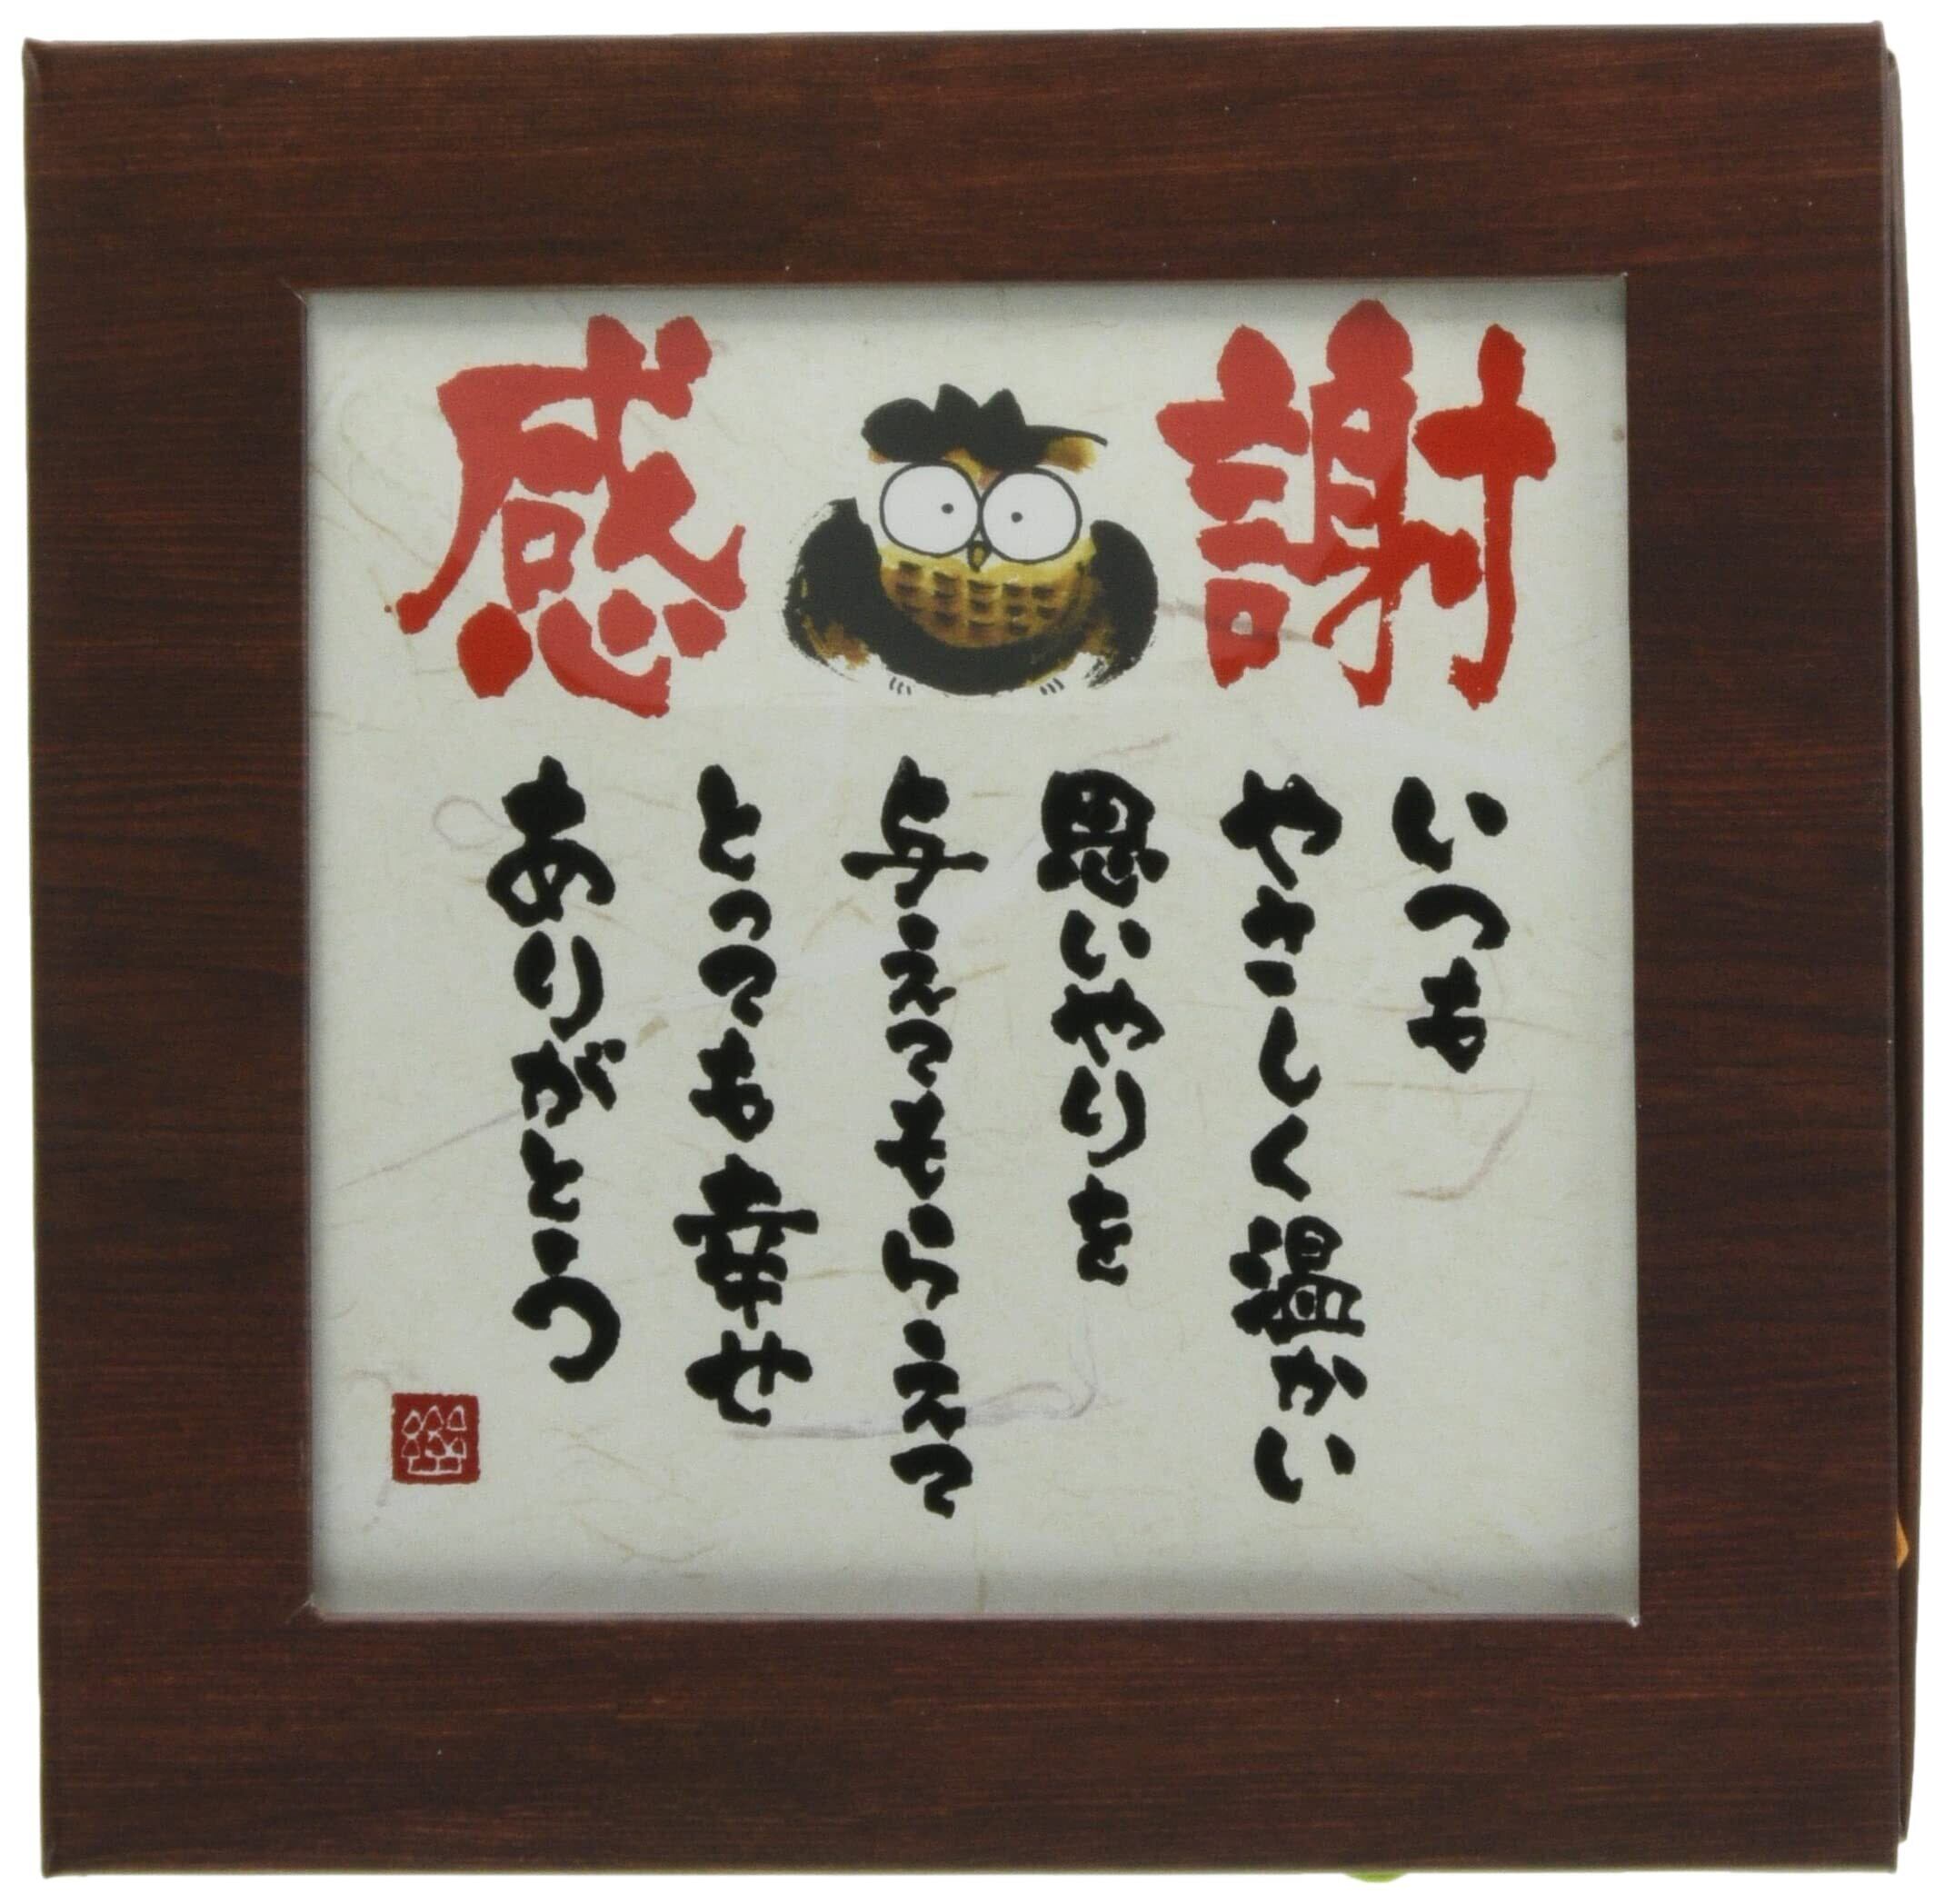 感謝
いつも
やさしく温かい
思いやりを
与えてもらえて
とっても幸せ
ありがとう